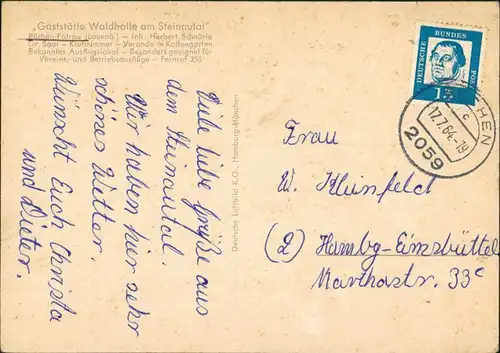 „Gaststätte Waldhalle am Steinautal"
Büchen-Pötrau (Lauenb.) — Inh. Herbert Schnürle
Gr. Saal — Klubzimmer — Veranda — Kaffeegarten
Bekanntes Ausflugslokal — Besonders geeignet für
Vereins- und Betriebsausflüge — Fernruf 353
Viele liebe Grüße aus
dem Steinautal.
Wir haben hier sehr
schönes Wetter.
Wünscht Euch Christa
und Dieter.
Deutsche Luftbild K.G., Hamburg-München
DEUTSCHE BUNDES POST
15
CHEN
c
17.7.64.-19
2059
Frau
W. Kleinfeld
(2) Hambg-Eimsbüttel
Marthastr. 33c